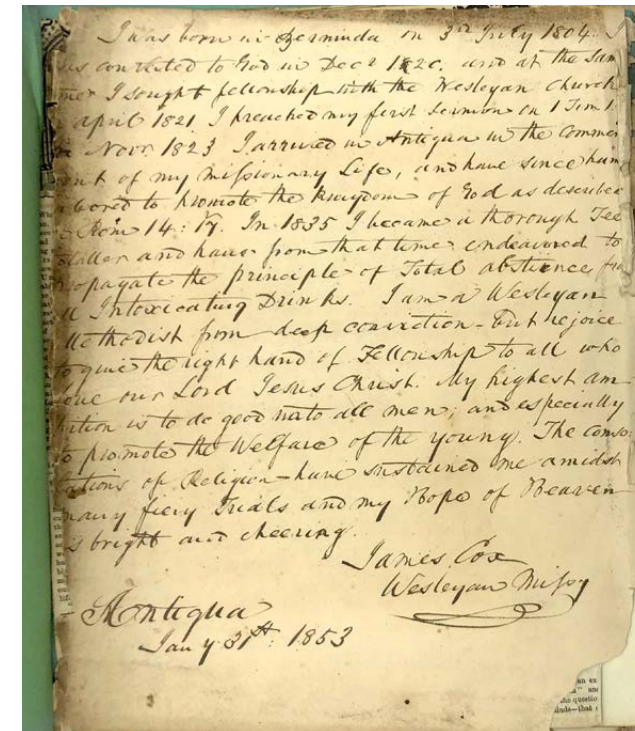 I was born in Bermuda on 3rd July 1804. I
was converted to God in Decr 1820. and at the sam
I sought fellowship with the Wesleyan Church
april 1821 I preached my first sermon on 1 Tim 1.
Novr 1823 I arrived in Antigua in the commen
of my missionary Life, and have since hum
bored to promote the Kingdom of God as described
Rom 14:17. In 1835 I became a thorough Tee
totaller and have from that time endeavoured to
propagate the principle of Total abstience fro
all Intoxicating Drinks. I am a Wesleyan
Methodist from deep conviction - but rejoice
to give the right hand of Fellowship to all who
love our Lord Jesus Christ. My highest am
bition is to do good unto all men; and especially
to promote the Welfare of the young. The conso
lations of Religion - have sustained me amidst
many fiery Trials and my Hope of Heaven
is bright and cheering.
James Cox
Wesleyan Missy
Antigua
Jany 31st: 1853
an ex
" and
the questio